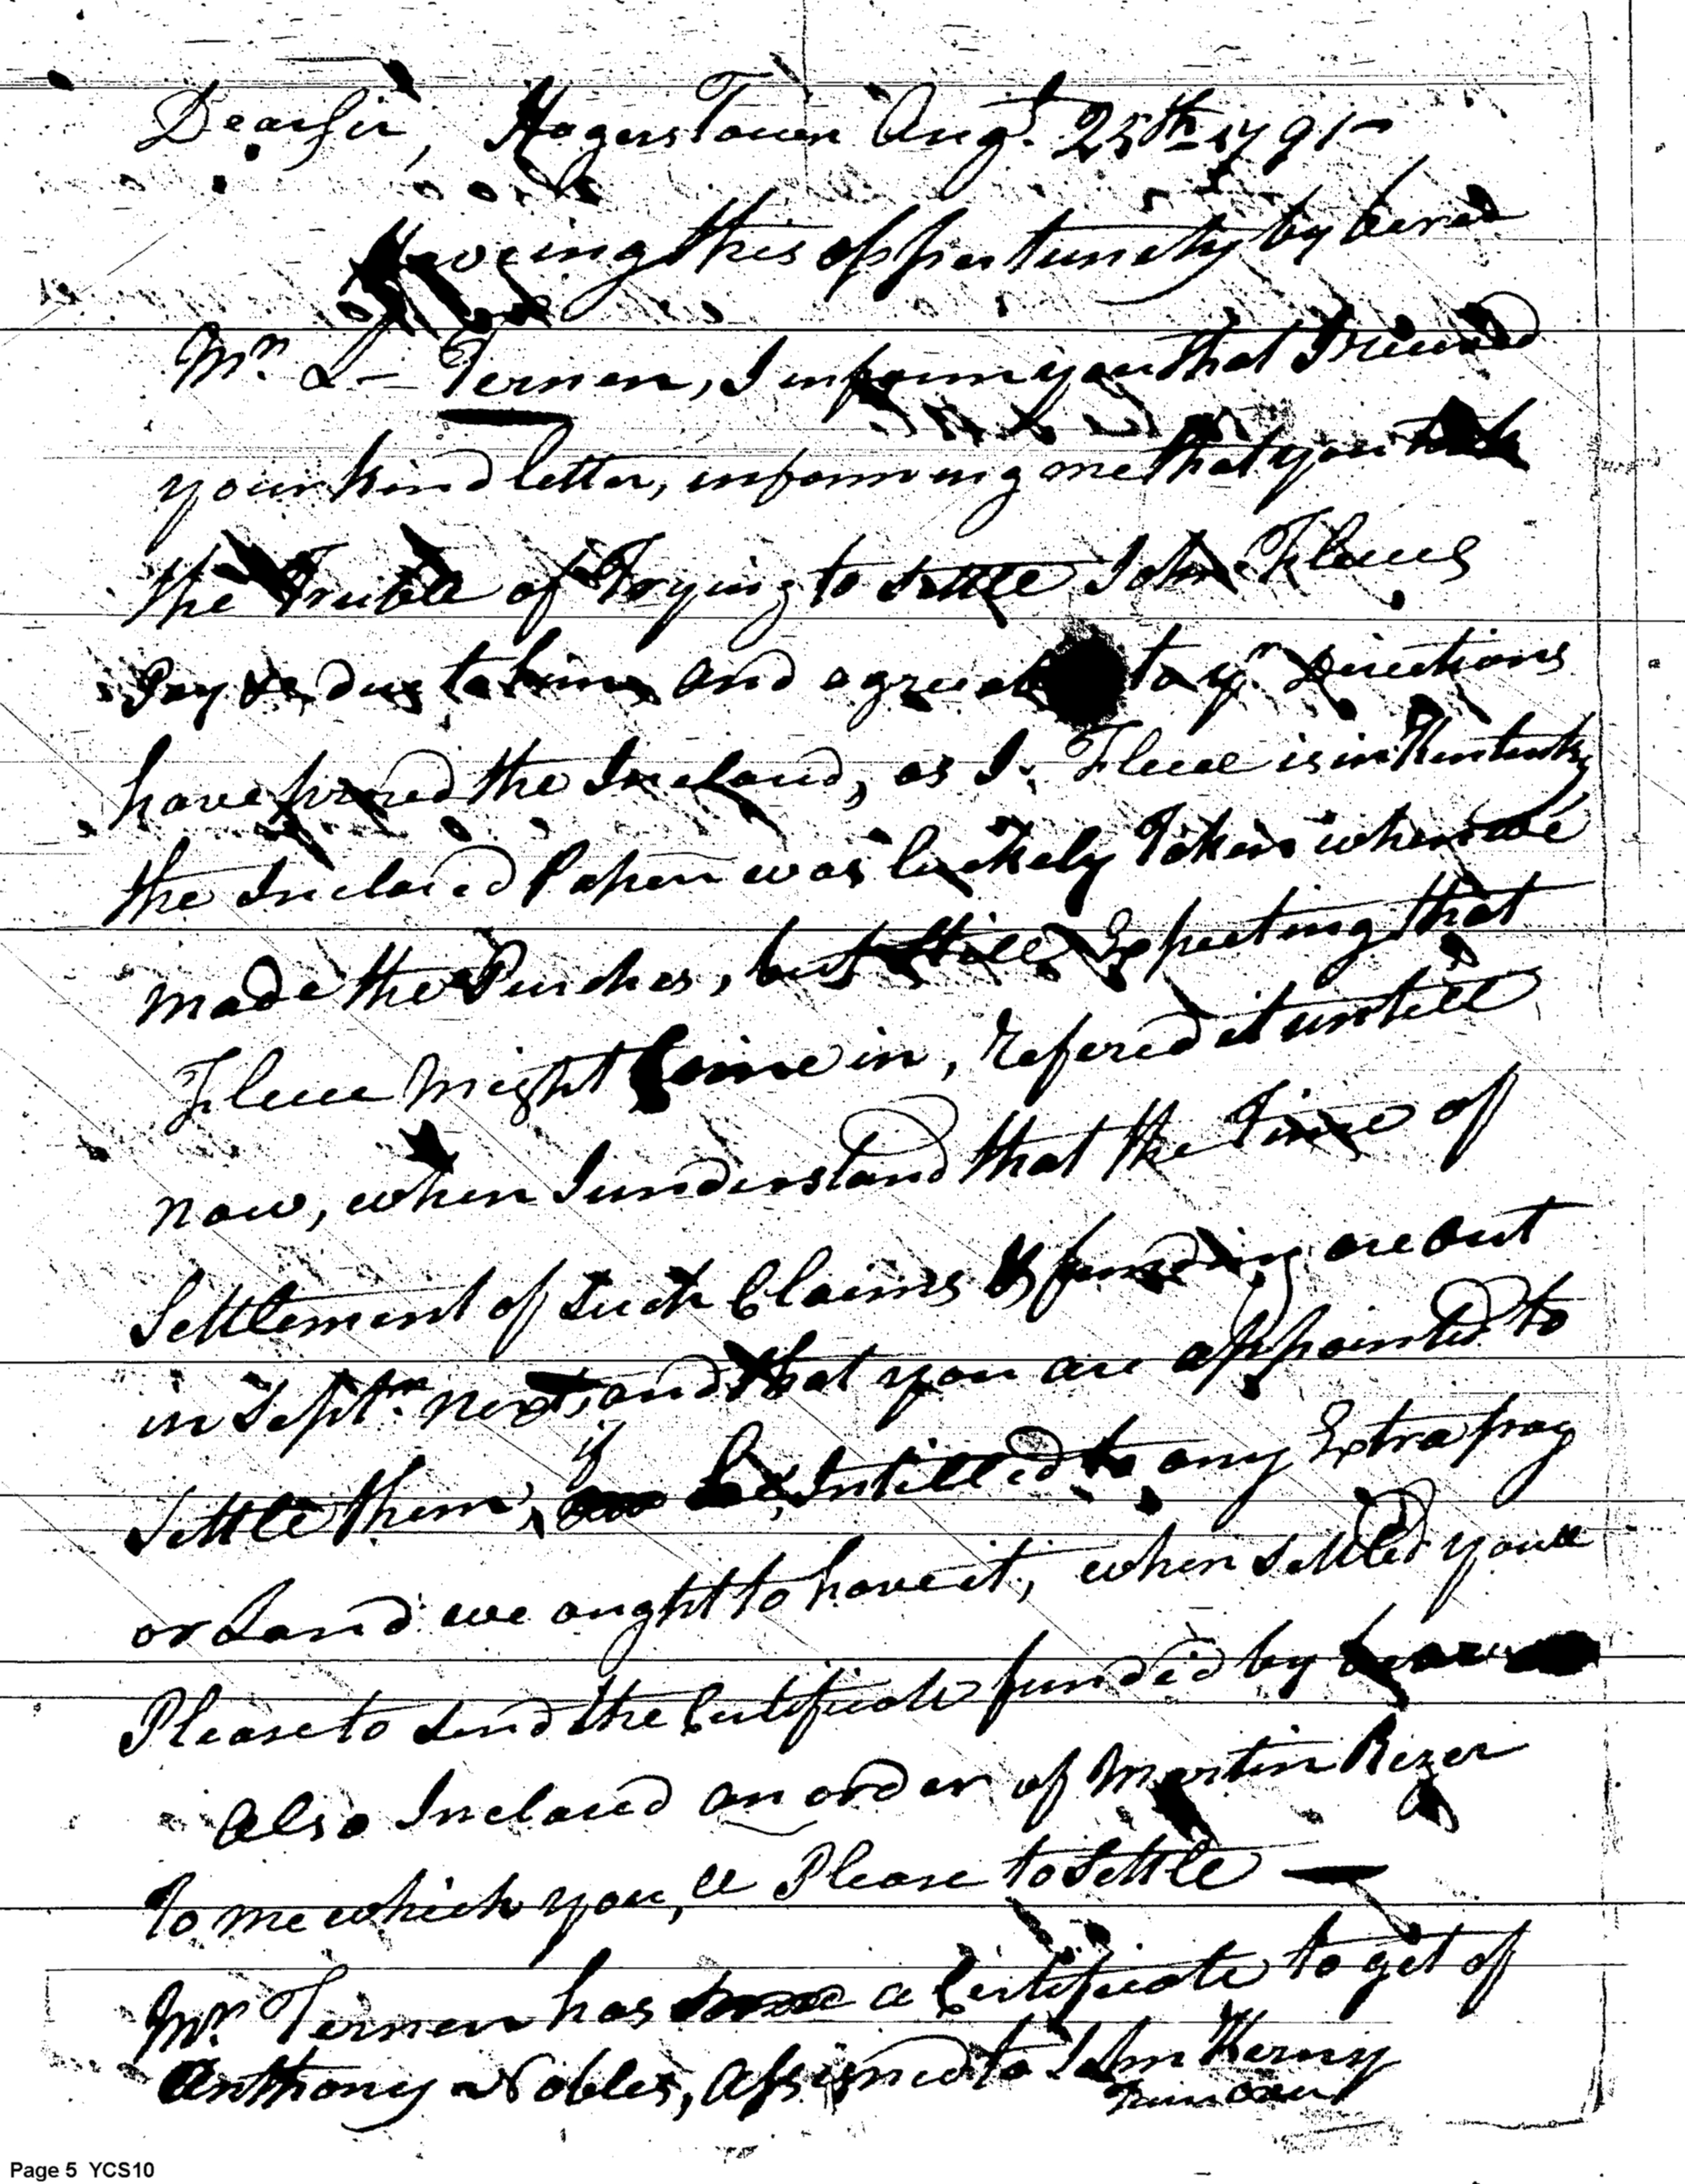 Dear Sir, Hagers Town Augt. 25th 1791-
Haveing this oppertunety by
Mr. L- Ternen, I inform you that I receved
your kind letter, informing me that you took
the Truble of Trying to Settle John Flecks
Pay due to him and agreeabl to yr. Directions
have the Inclosed, as J. Fleck is in Kentucky
the Inclosed Paper was luckely Taken when we
made the Purches, but Still Expecting that
might Come in, refered it untill
now, when I understand that the Time of
Settlement of Such Claims & funding are out
in Septr. next, and that you are appointed to
Settle them, if Intitled to any Extra pay
or Land we ought to have it, when Settled youll
Please to Send the Certificate funded by
Also Inclosed an order of Martin Rizer
To me which you,ll Please to Settle -
Mr. Ternen has a Certificate to get of
Anthony Nobles, Assigned to John Kerny
Page 5 YCS10